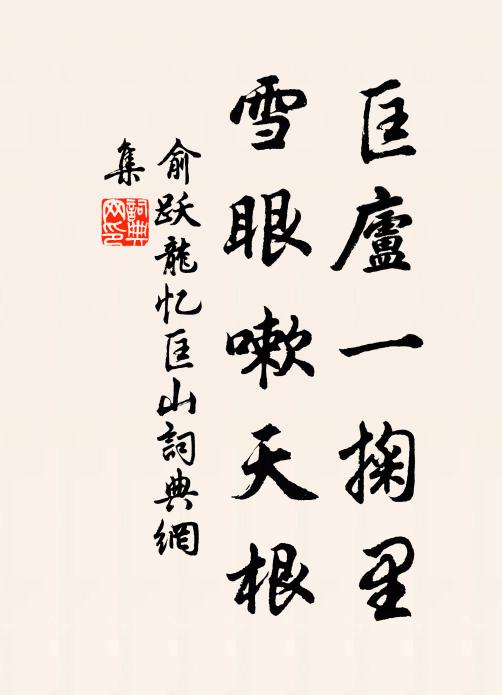 匡廬一掬里
雪眼嗽天根
俞跃龍忆匡山詞典網
集
詞典網印